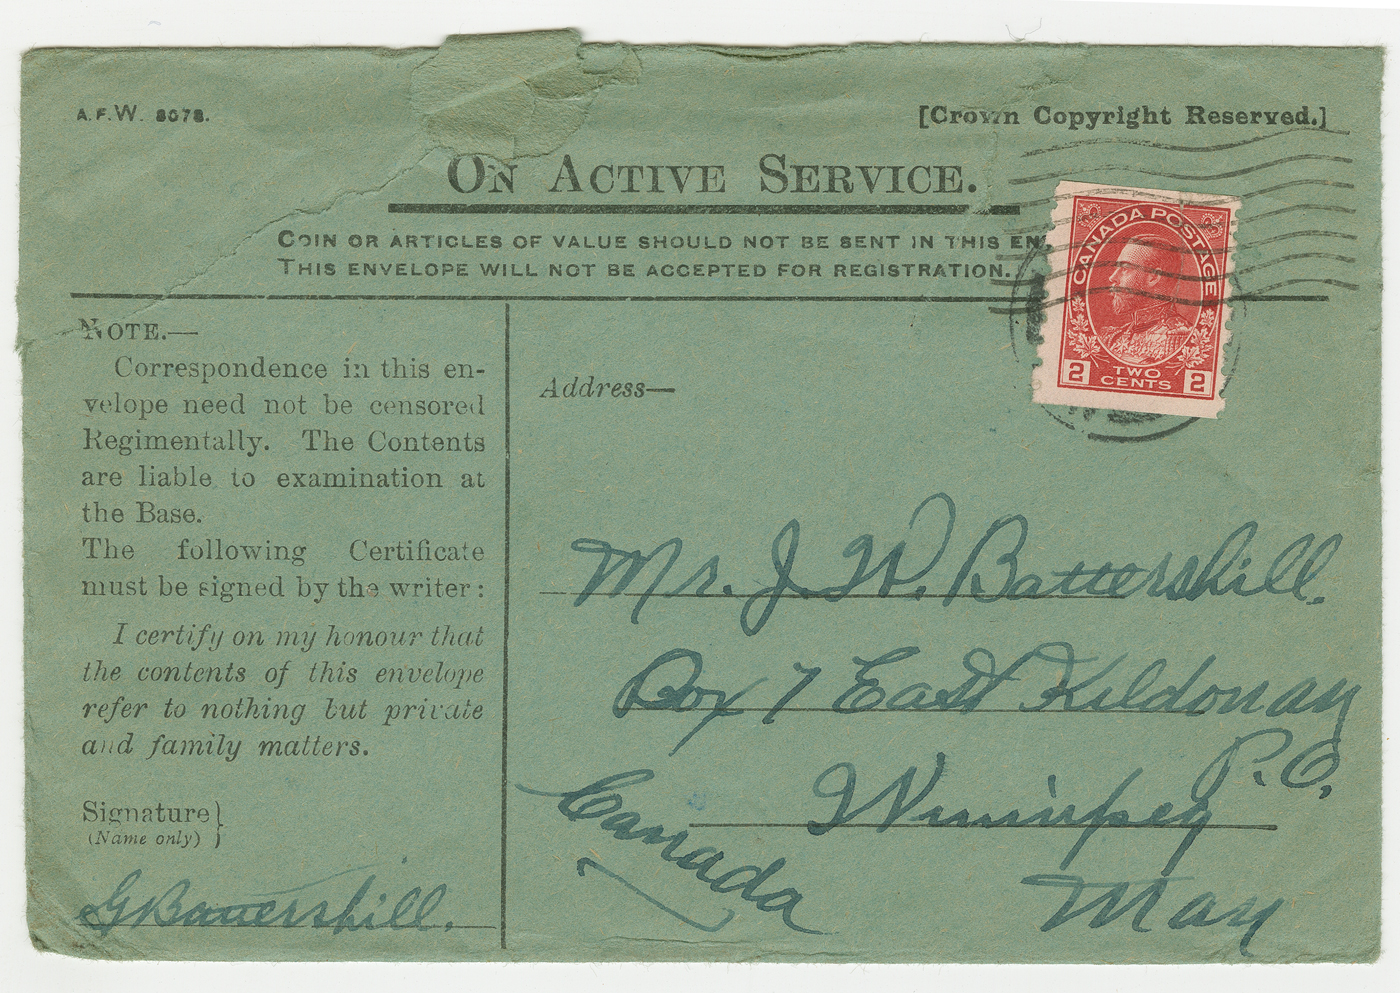 A.F.W. 3078.
[Crown Copyright Reserved.]
ON ACTIVE SERVICE.
COIN OR ARTICLES OF VALUE SHOULD NOT BE SENT IN THIS EN
THIS ENVELOPE WILL NOT BE ACCEPTED FOR REGISTRATION.
CANADA POSTAGE
2 TWO CENTS 2
NOTE.—
Correspondence in this en-
velope need not be censored
Regimentally. The Contents
are liable to examination at
the Base.
The following Certificate
must be signed by the writer:
I certify on my honour that
the contents of this envelope
refer to nothing but private
and family matters.
Signature}
(Name only)
G Battershill.
Address—
Mr. J. W. Battershill.
Box 7 East Kildonan
P.O.
Winnipeg
Man
Canada